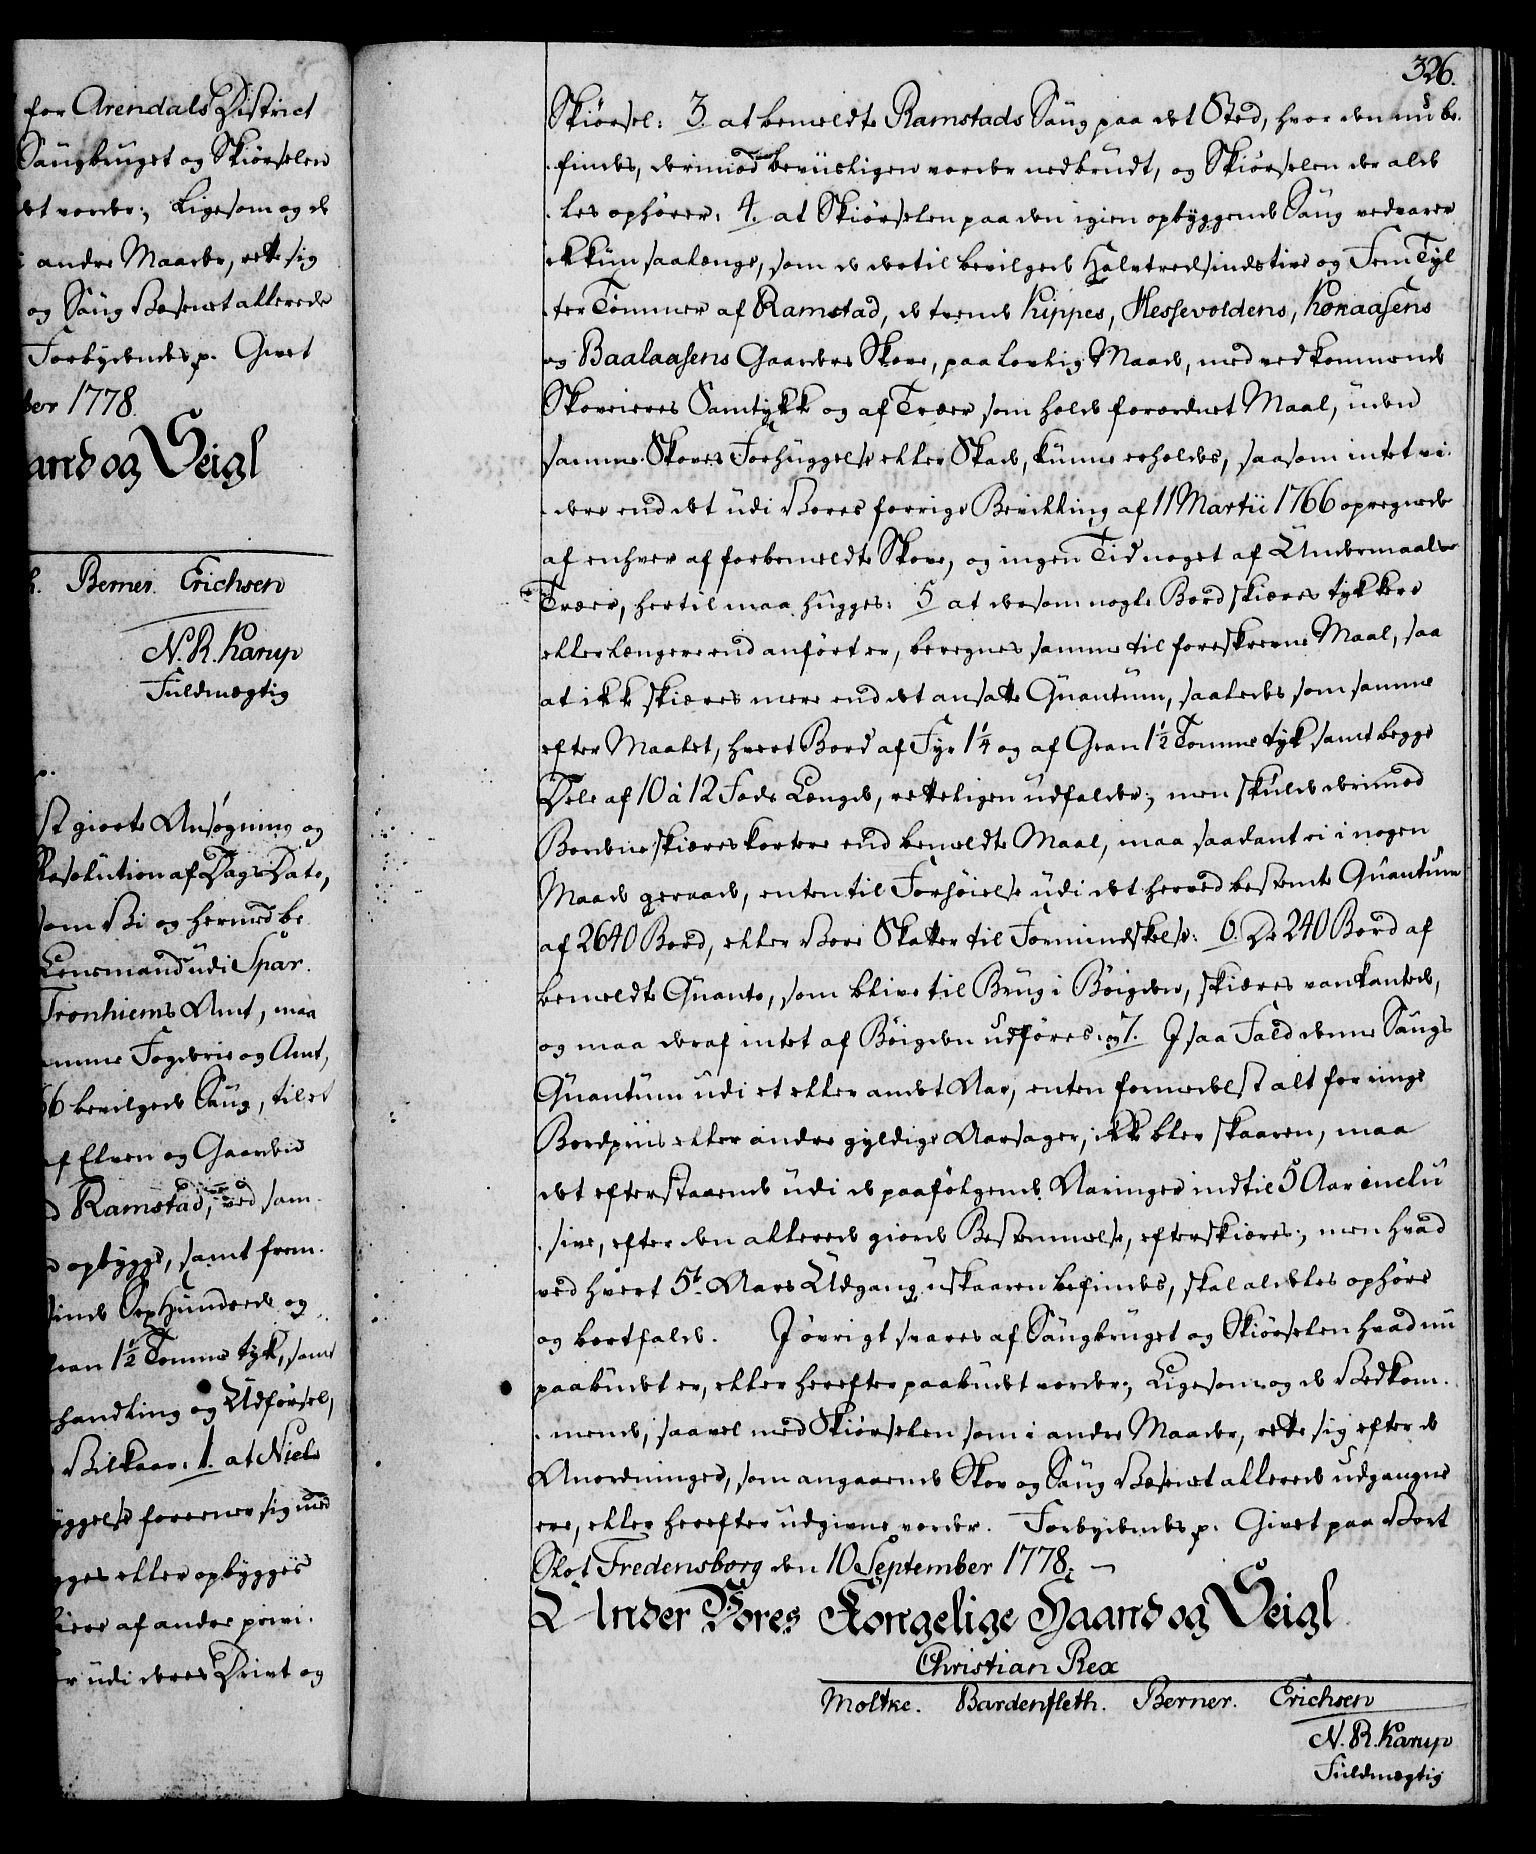 for Arendals District
Saugbruget og Skiørselen
det vorder; Ligesom og de
i andre Maader, rette sig
og Saug Væsenet allerede
Forbydendes p. Givet
ber 1778.
and og Seigl
h. Berner. Erichsen
N. R. Karup
Fuldmægtig
p.
st giorte Ansøgning og
Resolution af Dags Dato,
som Vi og hermed be
Lensmand udi Spar.
Tronhiems Amt, maa
emme Fogderie og Amt,
66 bevilgede Saug, til et
af Elven og Gaarden
d Ramstad, ved sam
d opbygge, samt frem.
sinds Sex Hundrede og
Gran 1½ Tomme tyk, samt
handling og Udførsel,
Vilkaar: 1. at Niels
yggelse foreener sig med
gges eller opbygges
kiere af andre privi.
er udi deres Drivt og
326.
Skiørsel: 3. at bemeldte Ramstads Saug paa det Sted, hvor den nu be.
findes, derimod beviisligen vorder nedbrudt, og Skiørselen der alde
les ophører: 4. at Skiørselen paa den igien opbyggende Saug vedvarer
ekkun saalænge, som de dertil bevilgede Halvtredsindstive og Fem Tyl
ter Tømmer af Ramstad, de tvende Kippes, Hessevoldens, Koraasens
og Baalaasens Gaarders Skove, paa lovlig Maade, med vedkommende
Skoveieres Samtykke og af Træer som holde forordnet Maal, uden
samme Skoves Forhuggelse eller Skade, kunne erholdes, saasom intet vi.
dere end det udi Vores forrige Bevilling af 11 Martii 1766 opregnede
af enhver af forbemeldte Skove, og ingen Tid noget af Undermaals
Træer, hertil maa hugges: 5 at dersom nogle Bord skiæres tykkere
eller længere end anført er, beregnes samme til foreskrevne Maal, saa
at ikke skiæres mere end det ansatte Quantum, saaledes som samme
efter Maalet, hvert Bord af Fyr 1¼ og af Gran 1½ Tomme tyk samt begge
Dele af 10 à 12 Fods Længde, retteligen udfalder; men skulde derimod
Bordene skiæres kortere end bemeldte Maal, maa saadant ei i nogen
Maade geraade, enten til Forhøielse udi det herved bestemte Quantum
af 2640 Bord, eller Vore Skatter til Formindskelse: 6. De 240 Bord af
bemeldte Quanto, som blive til Brug i Bøigden, skiæres vankantede,
og maa deraf intet af Bøigden udføres: og 7. I saa Fald denne Saugs
Quantum udi et eller andet Aar, enten formedelst alt for ringe
Bordpriis eller andre gyldige Aarsager, ikke blev skaaren, maa
det efterstaaende udi de paafølgende Aaringer indtil 5 Aar inclu
sive, efter den allerede giorde Bestemmelse, efterskiæres; men hvad
ved hvert 5te Aars Udgang uskaaren befindes, skal aldeles ophøre
og bortfalde. I øvrigt svares af Saugbruget og Skiørselen hvad nu
paabudet er, eller herefter paabudet vorder; Ligesom og de Vedkom.
mende, saavel med Skiørselen som i andre Maader, rette sig efter de
Anordninger, som angaaende Skov og Saug Væsenet allerede udgangne
ere, eller herefter udgivne vorder. Forbydendes p. Givet paa Vort
Slot Fredensborg den 10 September 1778.
Under Vores Kongelige Haand og Seigl
Christian Rex
Moltke. Bardenfleth. Berner. Erichsen
N. R. Karup
Fuldmægtig